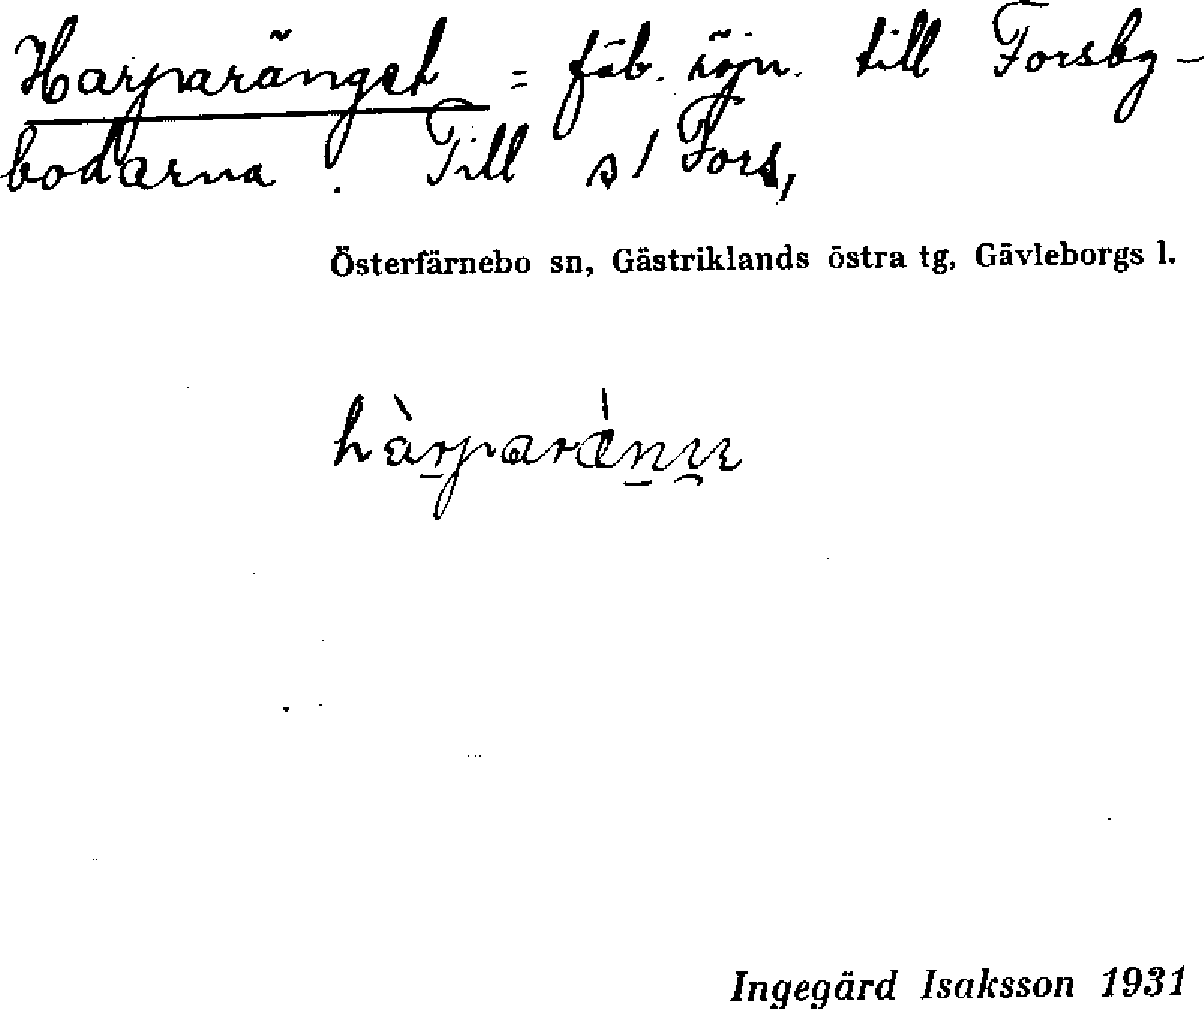 Harparänget = fäb. röjn. till Forsby-
bodarna. Till s/ Fors,
Österfärnebo sn, Gästriklands östra tg, Gävleborgs l.
Ingegärd Isaksson 1931